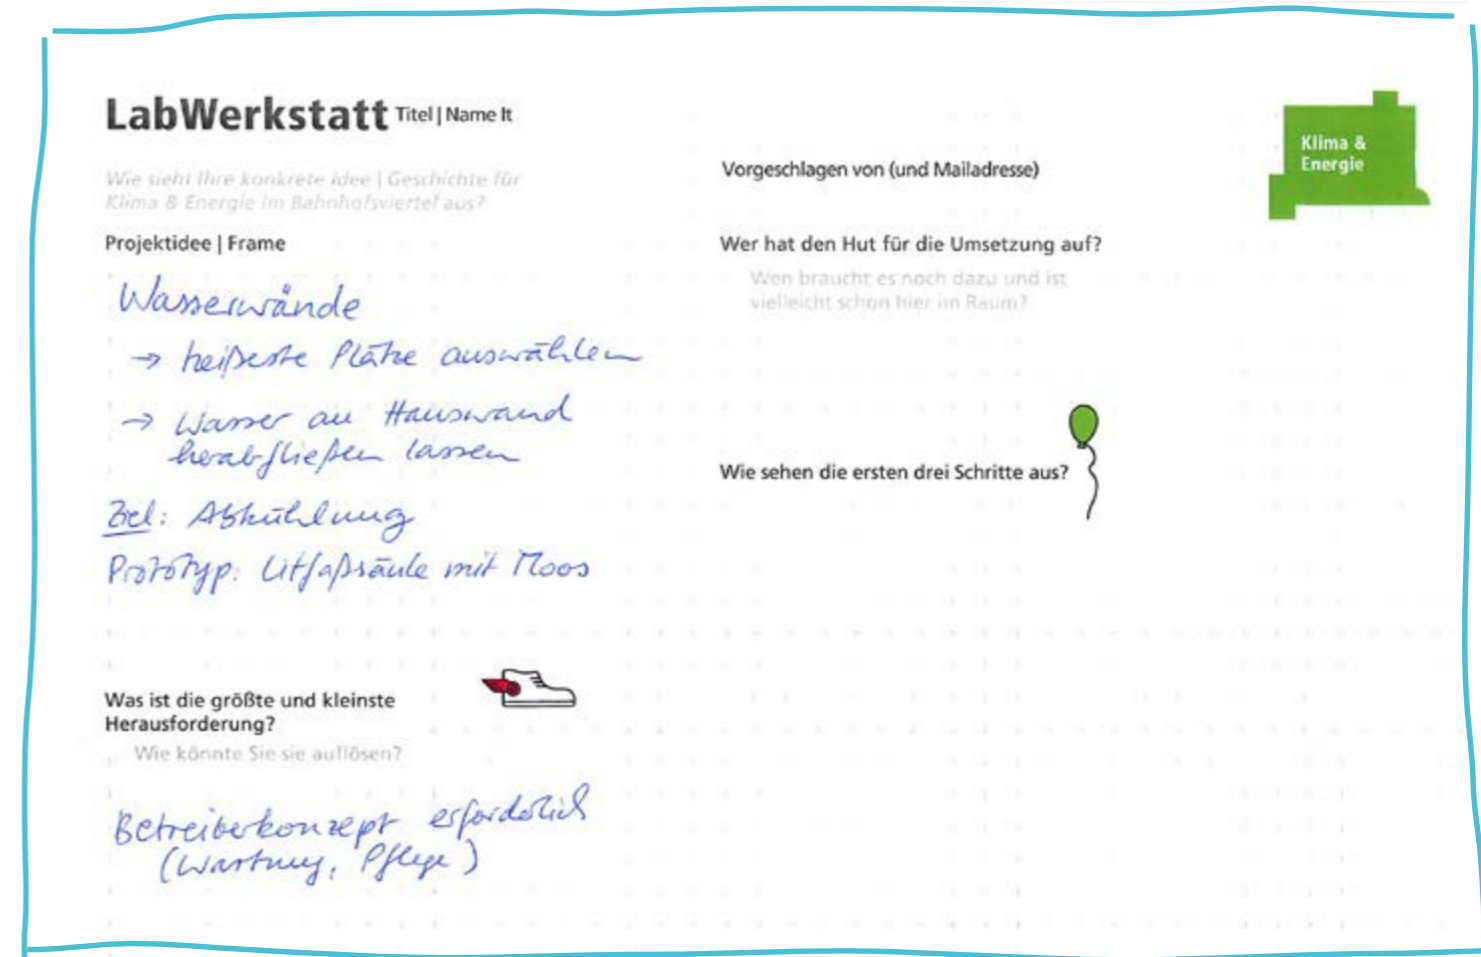 LabWerkstatt Titel | Name It
Wie sieht Ihre konkrete Idee | Geschichte für
Klima & Energie im Bahnhofsviertel aus?
Projektidee | Frame
Wasserwände
→ heißeste Plätze auswählen
→ Wasser an Hauswand
herabfließen lassen
Ziel: Abkühlung
Prototyp: Litfaßsäule mit Moos
Was ist die größte und kleinste
Herausforderung?
Wie könnte Sie sie auflösen?
Betreiberkonzept erforderlich
(Wartung, Pflege)
Vorgeschlagen von (und Mailadresse)
Wer hat den Hut für die Umsetzung auf?
Wen braucht es noch dazu und ist
vielleicht schon hier im Raum?
Wie sehen die ersten drei Schritte aus?
Klima &
Energie